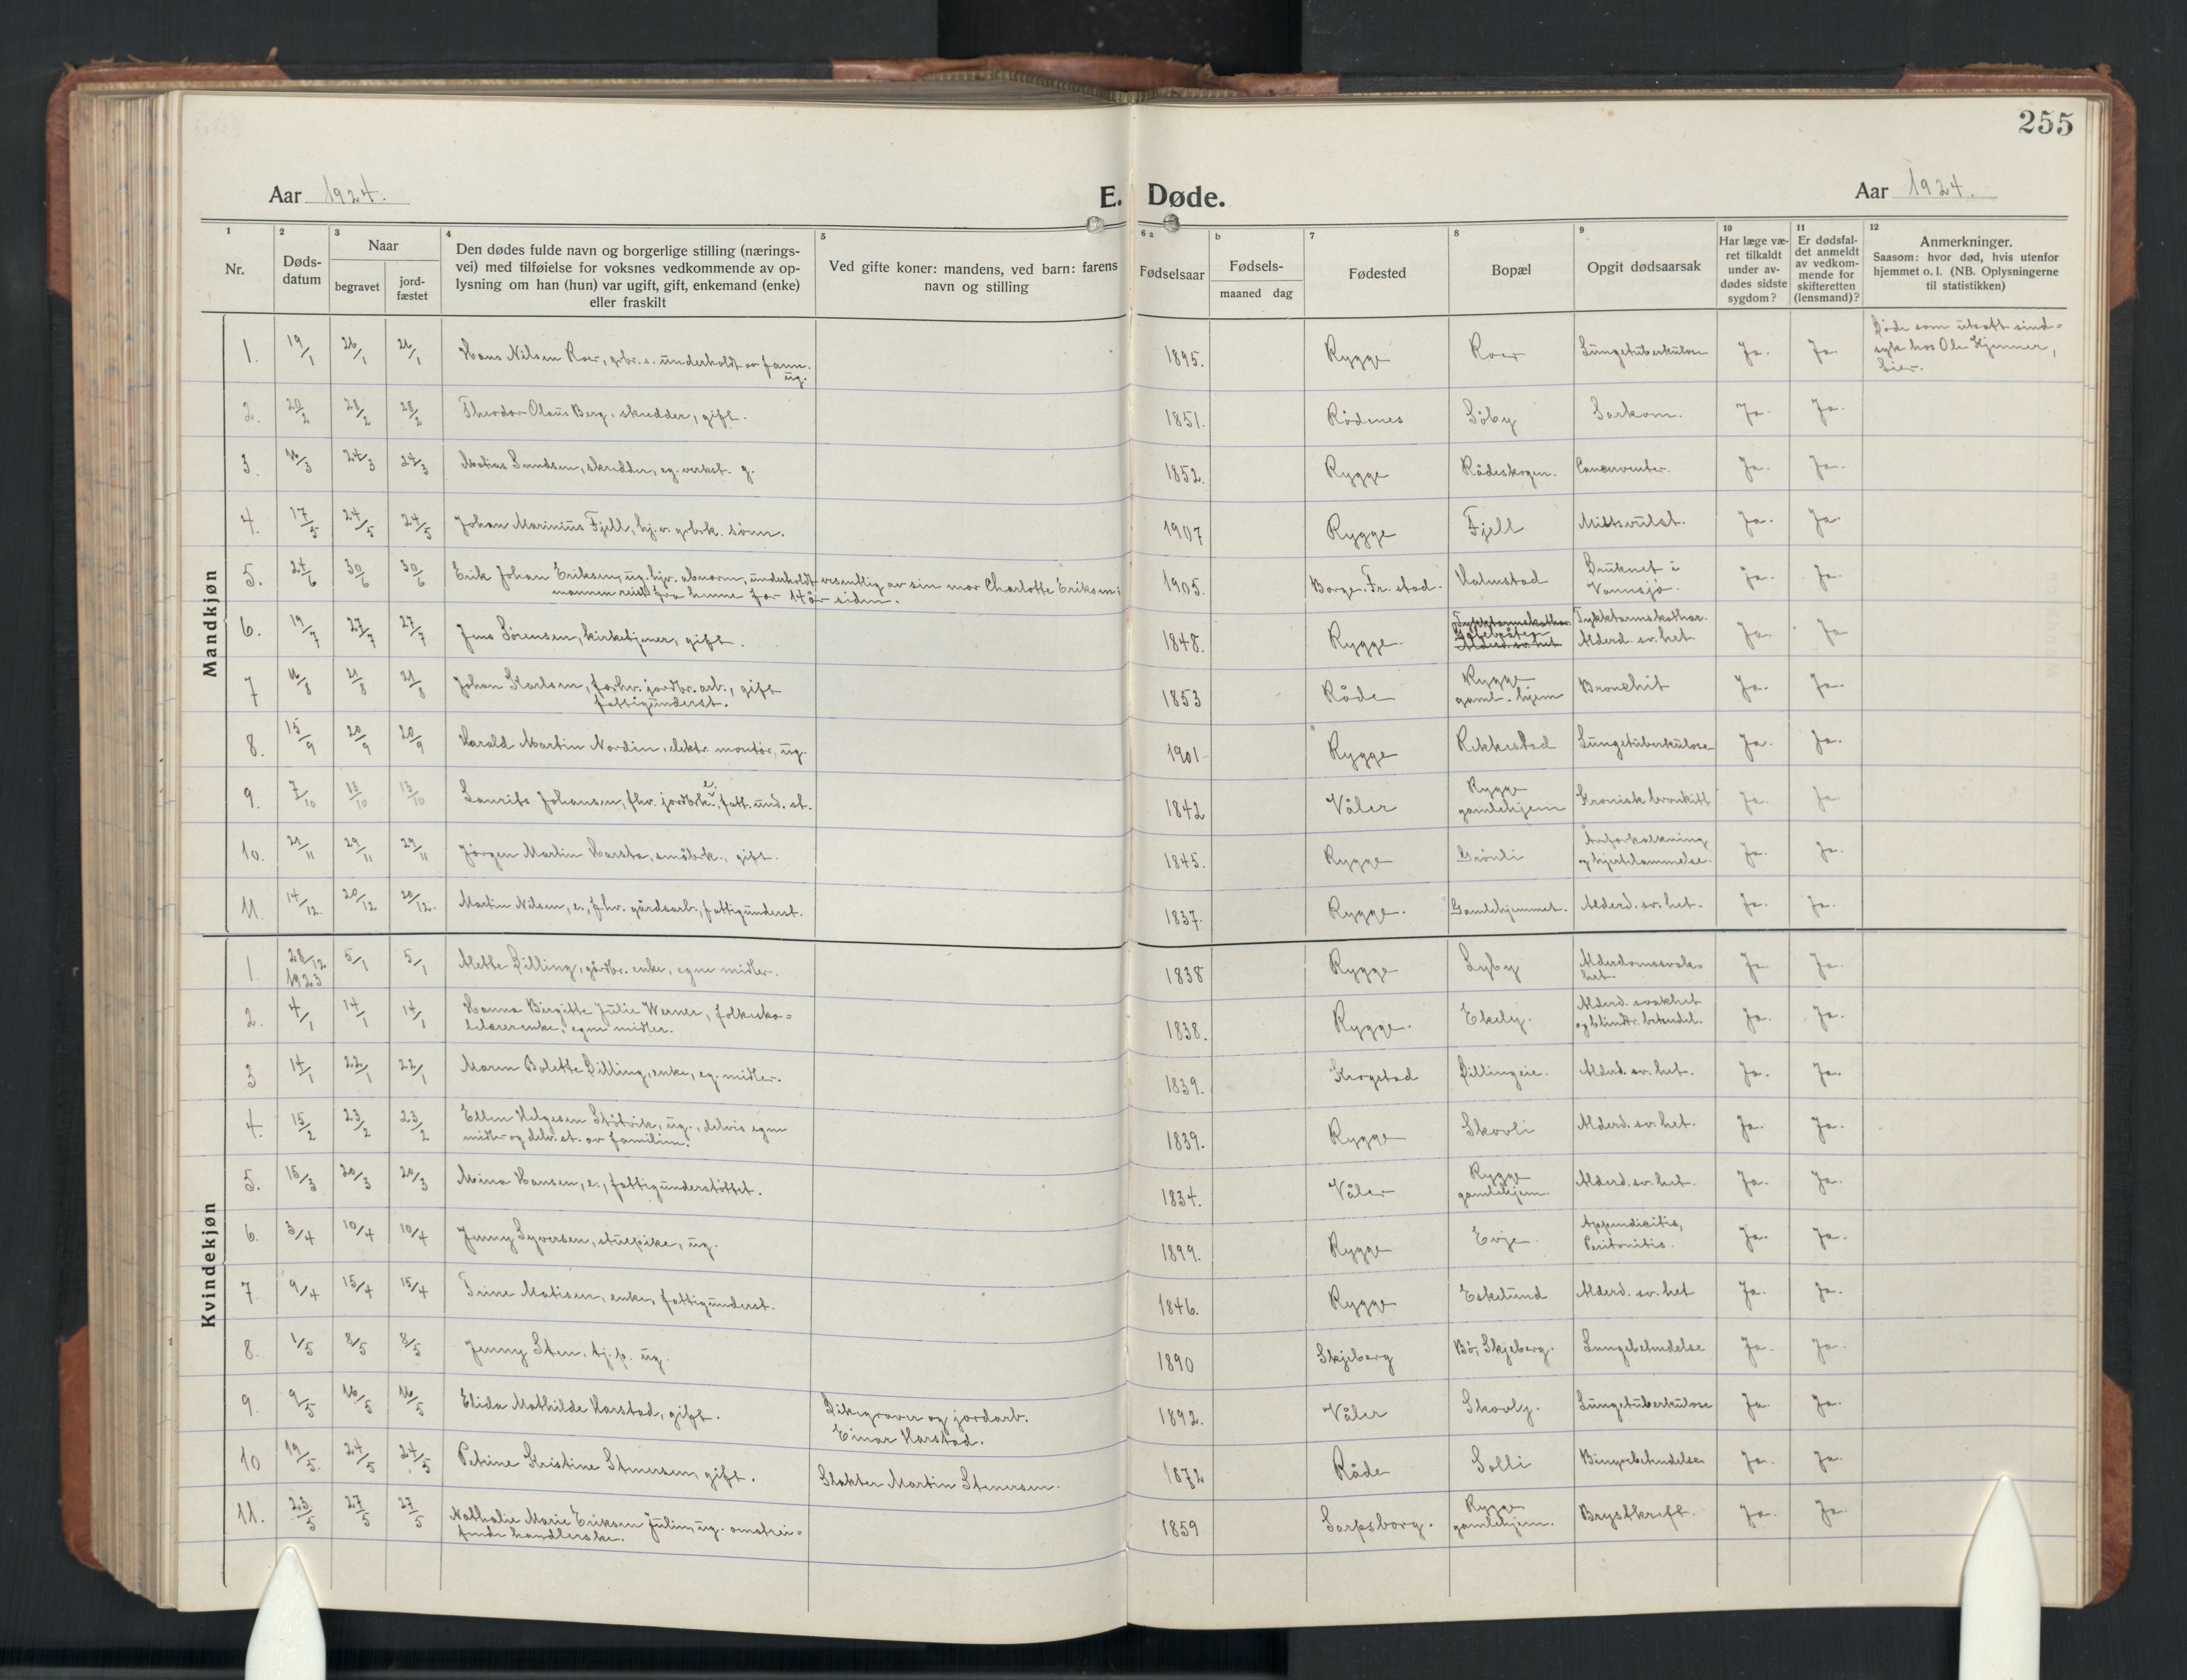 255
Aar 1924.
E. Døde.
Aar 1924.
1 2 3 4 5 6 a b 7 8 9 10 11 12
Nr.
Døds-
datum
Naar
begravet
jord-
fæstet
Den dødes fulde navn og borgerlige stilling (nærings-
vei) med tilføielse for voksnes vedkommende av op-
lysning om han (hun) var ugift, gift, enkemand (enke)
eller fraskilt
Ved gifte koner: mandens, ved barn: farens
navn og stilling
Fødselsaar
Fødsels-
maaned dag
Fødested
Bopæl
Opgit dødsaarsak
Har læge væ-
ret tilkaldt
under av-
dødes sidste
sygdom?
Er dødsfal-
det anmeldt
av vedkom-
mende for
skifteretten
(lensmand)?
Anmerkninger.
Saasom: hvor død, hvis utenfor
hjemmet o. l. (NB. Oplysningerne
til statistikken)
Mandkjøn
1. 19/1 26/1 26/1 Hans Nilsen Roer, gbr. s. underholdt av fam. 1895. Rygge Roer Lungetuberkulose Ja. Ja.
ug.
Døde som utsatt sind-
syk hos Ole Kjenner,
2. 20/2 28/2 28/2 Theodor Olaus Berg, skredder, gift. 1851. Rødenes Løby Sarkom. Ja. Ja.
3. 16/3 24/3 24/3 Matias Lundsen, skredder, eg. verkst. g. 1852. Rygge Rådeskogen. Cancerventer. Ja. Ja.
4. 17/5 24/5 24/5 Johan Marinius Fjell, hj. v. gbrk. sønn. 1907 Rygge Fjell Ja. Ja.
5. 24/6 30/6 30/6 Erik Johan Eriksen, ug. hjv. abnorm, underholdt vesentlig av sin mor Charlotte Eriksen; 1905. Borge. Fr. stad. Halmstad Druknet i Ja. Ja.
mannen reist fra henne for 14 år siden. Vannsjø.
6. 19/7 27/7 27/7 Jens Sørensen, kirketjener, gift. 1848. Rygge. Tykktarmskathar. Tykktarmskathar. Ja. Ja
Alderd. sv. het Alderd. sv. het
7 16/8 21/8 21/8 Johan Karlsen, forhv. jordbr. arb., gift 1853 Råde Rygge Bronchit Ja. Ja.
fattigunderst. gaml. hjem
8. 15/9 20/9 20/9 Harald Martin Nordin, elektr. montør, ug. 1901 Rygge Rikkestad Lungetuberkulose Ja. Ja.
9. 7/10 13/10 13/10 Laurits Johansen, fhv. jordbrk. e., fatt. und. st. 1842 Våler Rygge Kronisk bronkitt Ja. Ja
gamlehjem
10. 21/11 29/11 29/11 Jørgen Martin Harsta, småbrk., gift. 1845. Rygge Grønli Årforkalkning Ja. Ja.
og hjertelammelse.
11. 14/12. 20/12 20/12. Martin Nilsen, e., f.hv. gårdsarb., fattigunderst. 1837. Rygge. Gamlehjemmet. Alderd. sv. het. Ja. Ja.
Kvindekjøn
1. 28/12 5/1 5/1 Mette Dilling, gårdbr. enke, egne midler. 1838 Rygge Lyby Alderdomssvak- Ja Ja.
1923 het
2. 4/1 14/1 14/1 Hanna Birgitte Julie Werner, folkesko- 1838. Rygge. Ekely. Alderd. svakhet Ja. Ja.
lelærerenke, egne midler. og blindtr. betendel.
3 14/1 22/1 22/1 Maren Bolette Dilling, enke, eg. midler. 1839. Krogstad Dillingeie. Alderd. sv. het. Ja. Ja.
4. 15/2 23/2 23/2 Ellen Helgesen Støtvik, ug., delvis egne 1839. Rygge Skovli Alderd. sv. het. Ja. Ja.
midler og delv. st. av familien.
5. 15/3 20/3 20/3 Mina Hansen, e., fattigunderstøttet. 1834. Våler Rygge Alderd. sv. het. Ja. Ja.
gamlehjem.
6. 3/4 10/4 10/4 Jenny Syversen, stuepike, ug. 1899. Rygge Evje. Appendicitis, Ja. Ja.
Peritonitis.
7 9/4 15/4 15/4 Trine Matisen, enke, fattigunderst. 1846. Rygge Eskelund Alderd. sv. het Ja. Ja.
8. 1/5 8/5 8/5 Jenny Sten, tj. p. ug. 1890 Skjeberg Bø, Skjeberg. Lungebetendelse Ja. Ja.
9. 9/5 16/5 16/5 Elida Mathilde Harstad, gift. Dikegraver og jordarb. 1892. Våler Skovly. Lungetuberkulose Ja. Ja.
Einar Harstad.
10 19/5. 24/5 24/5 Petrine Kristine Stenersen, gift. Slakter Martin Stenersen. 1872 Råde Solli Binyrebetendelse Ja. Ja.
11. 23/5 27/5 27/5 Nathalie Marie Eriksen Julin, ug. omstrei- 1859 Sarpsborg. Rygge Brystkreft. Ja. Ja.
fende handlerske. gamlehjem.